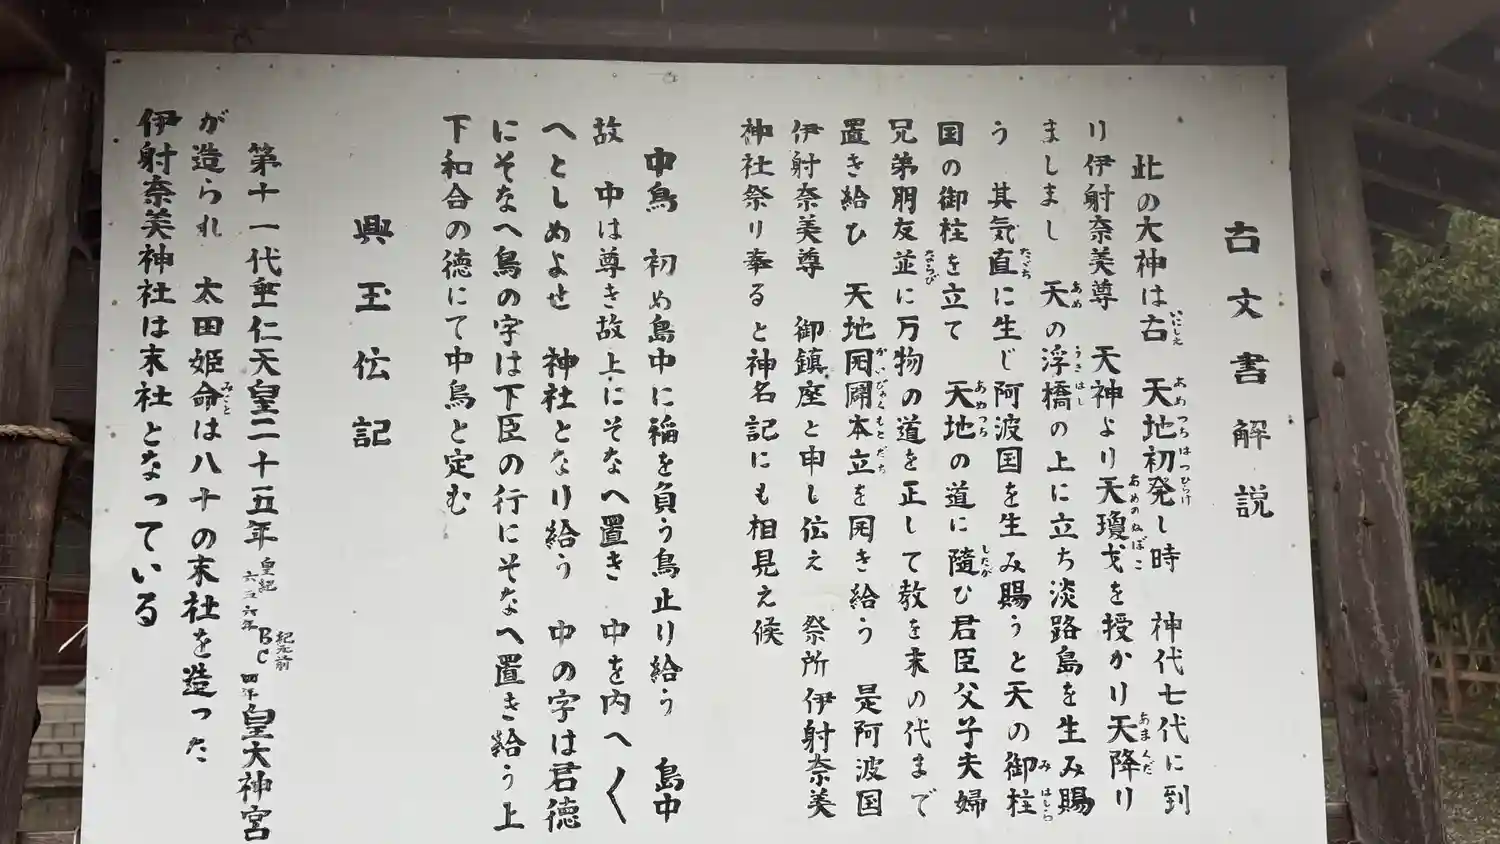 古文書解説
此の大神は古 天地初発し時 神代七代に到
いにしえ あめつちはつひらけ
り伊射奈美尊 天神より天瓊戈を授かり天降り
あめのねぼこ あまくだ
ましまし 天の浮橋の上に立ち淡路島を生み賜
あめ うきはし
う 其気直に生じ阿波国を生み賜うと天の御柱
ただち みはしら
国の御柱を立て 天地の道に隨ひ君臣父子夫婦
あめつち したが
兄弟朋友並に万物の道を正して教を末の代まで
ならび
置き給ひ 天地開闢本立を開き給う 是阿波国
かいびゃくもとだち
伊射奈美尊 御鎮座と申し伝え 祭所伊射奈美
神社祭り奉ると神名記にも相見え候
中鳥 初め島中に稲を負う鳥止り給う 島中
故 中は尊き故上にそなへ置き 中を内へ〱
へとしめよせ 神社となり給う 中の字は君徳
にそなへ鳥の字は下臣の行にそなへ置き給う上
下和合の徳にて中鳥と定む
興玉伝記
第十一代垂仁天皇二十五年 皇紀六五六年 紀元前BC四年 皇大神宮
が造られ 太田姫命は八十の末社を造った
みこと
伊射奈美神社は末社となっている